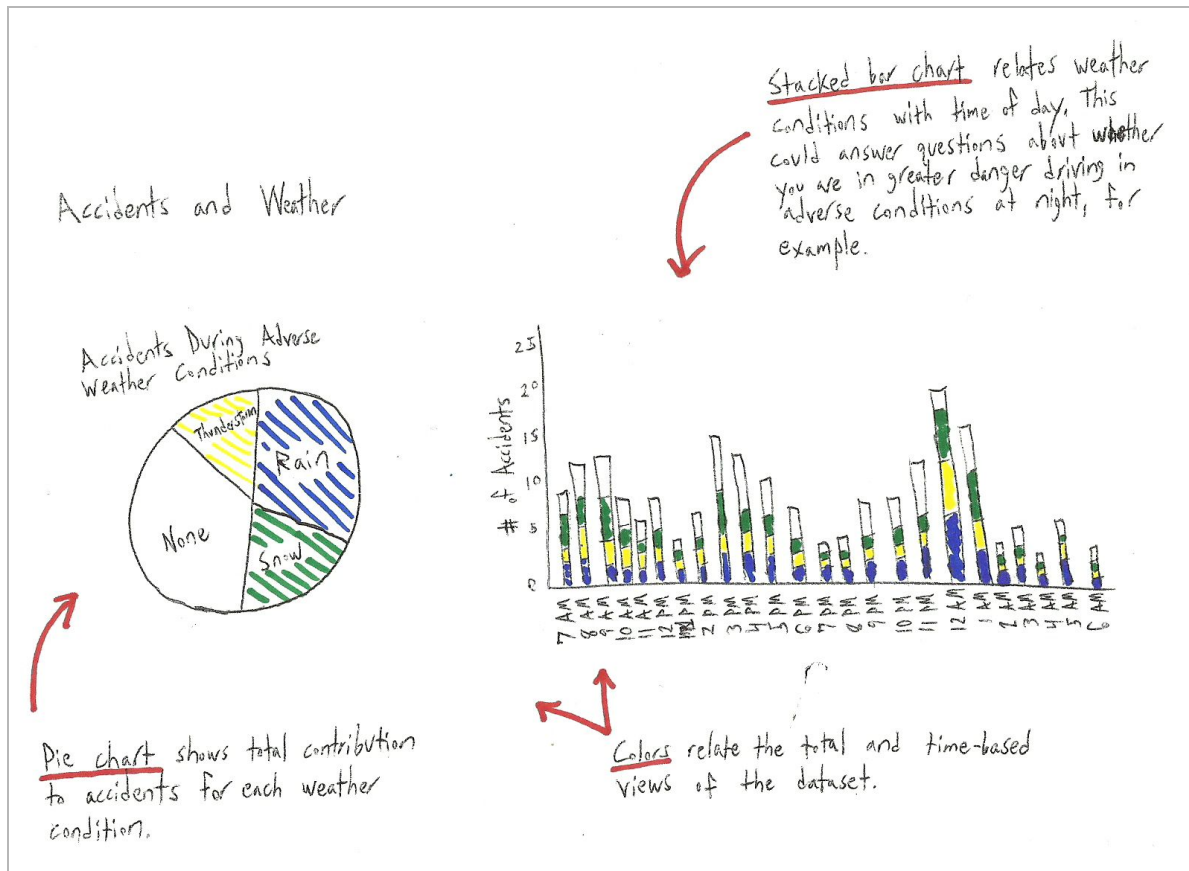 Stacked bar chart relates weather
conditions with time of day. This
could answer questions about whether
you are in greater danger driving in
adverse conditions at night, for
example.
Accidents and Weather
Accidents During Adverse
Weather Conditions
Thunderstorm
Rain
None
Snow
# of Accidents
25
20
15
10
5
0
7 AM
8 AM
9 AM
10 AM
11 AM
12 PM
1 PM
2 PM
3 PM
4 PM
5 PM
6 PM
7 PM
8 PM
9 PM
10 PM
11 PM
12 AM
1 AM
2 AM
3 AM
4 AM
5 AM
6 AM
Pie chart shows total contribution
to accidents for each weather
condition.
Colors relate the total and time-based
views of the dataset.